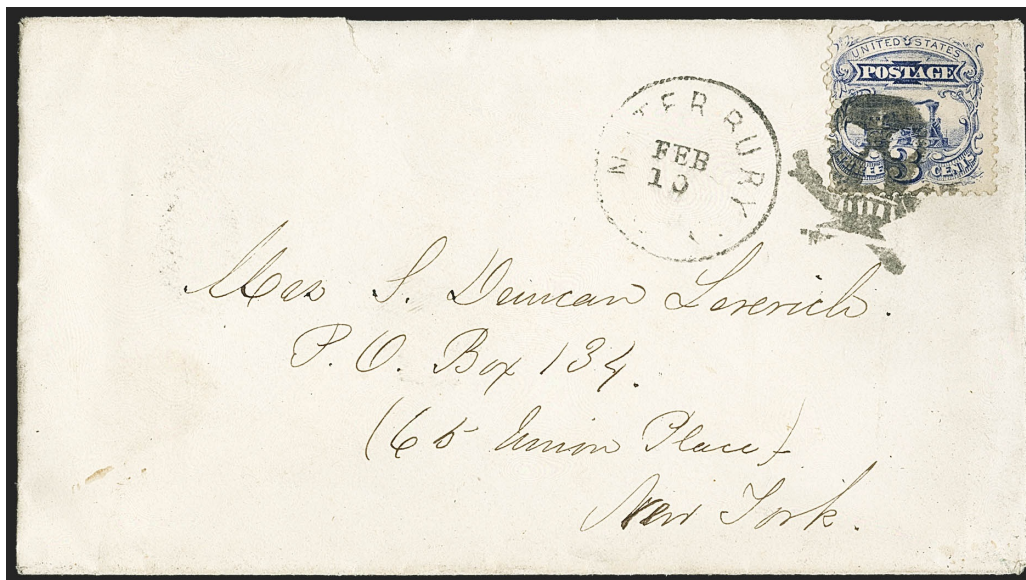 UNITED STATES
POSTAGE
3 CENTS
FEB
10
Mrs S. Duncan Leverich.
P. O. Box 134.
(65 Union Place)
New York.